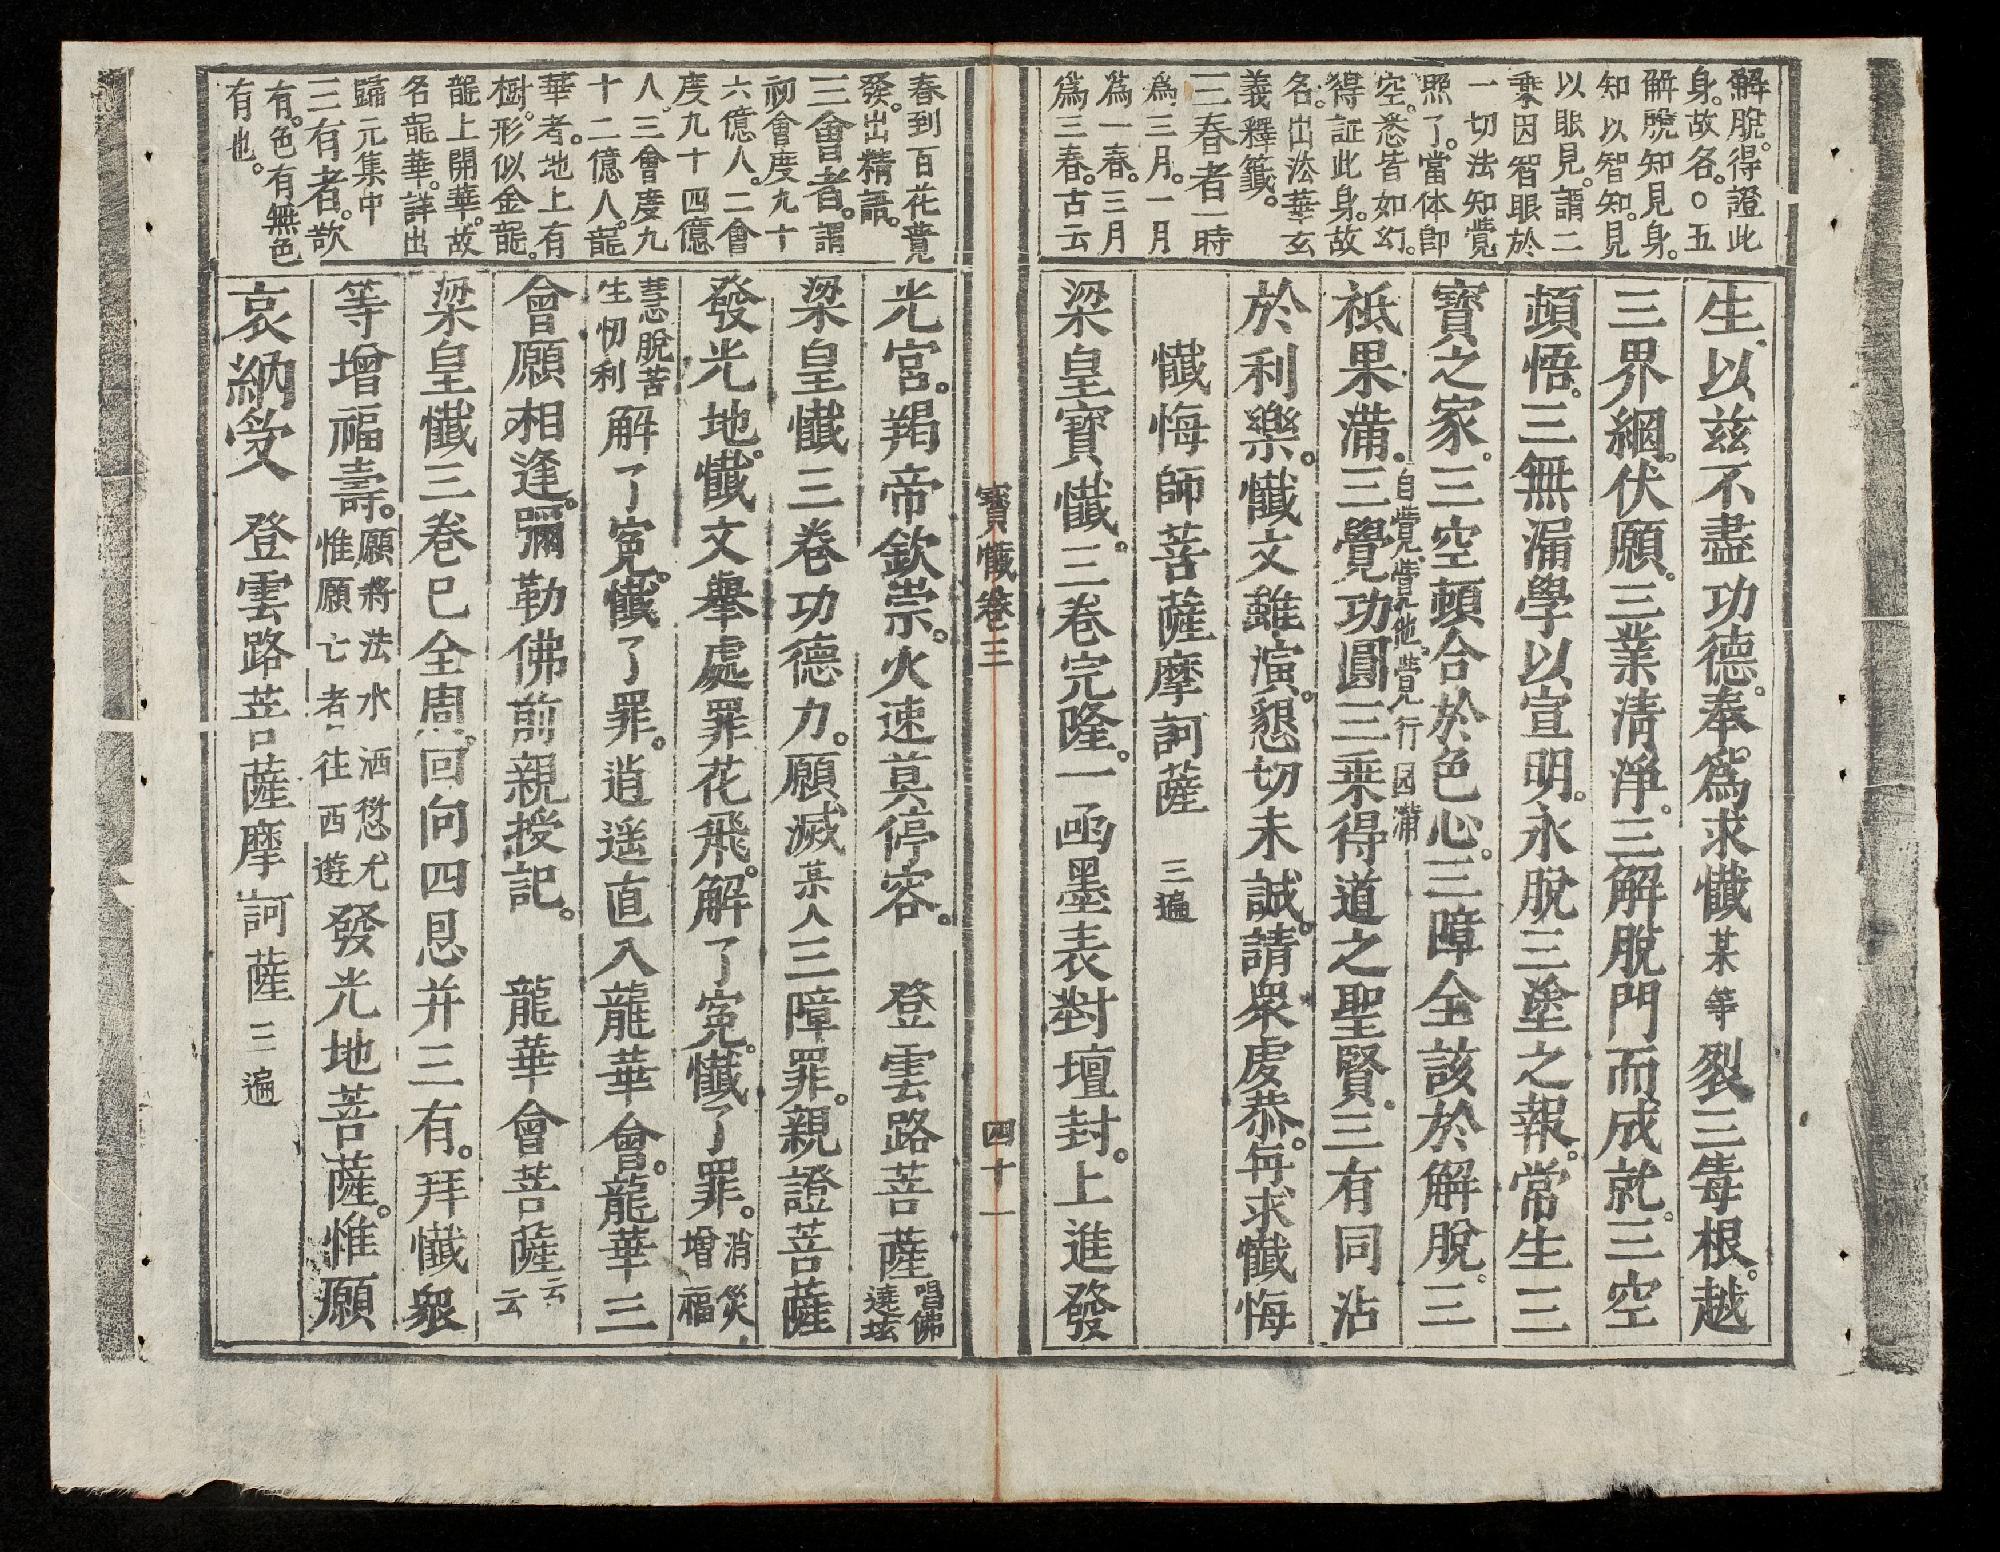 解脫。得證此
身。故名。○五
解脫知見身。
知以智知。見
以眼見。謂二
乗因智眼於
一切法知覺
照了。當体卽
空。悉皆如幻。
得証此身。故
名。出法華玄
義釋籤。
三春者一時
爲三月。一月
爲一春。三月
爲三春。古云
生以茲不盡功德。奉爲求懺某等裂三毒根。越
三界網。伏願。三業清淨。三解脫門而成就。三空
頓悟。三無漏學以宣明。永脫三塗之報。常生三
寶之家。三空頓合於色心。三障全該於解脫。三
祇果滿。三覺自覺覺他。覺行因滿功圓三乗得道之聖賢。三有同沾
於利樂。懺文雖演。懇切未誠。請衆虔恭。再求懺悔
懺悔師菩薩摩訶薩 三遍
梁皇寶懺。三卷完隆。一函墨表對壇封。上進發
寶懺卷三 四十一
春到百花覺
發。出精語。
三會者。謂
初會度九十
六億人。二會
度九十四億
人。三會度九
十二億人。龍
華者。地上有
樹。形似金龍。
龍上開華。故
名龍華。詳出
歸元集中
三有者。欲
有。色有無色
有也。
光宮。羯帝欽崇。火速莫停容。 登雲路菩薩唱佛遶坛
梁皇懺三卷功德力。願滅某人三障罪。親證菩薩
發光地。懺文舉處罪花飛。解了寃。懺了罪。消災增福
慧脫苦生忉利解了寃。懺了罪。逍遥直入龍華會。龍華三
會願相逢。彌勒佛前親授記。 龍華會菩薩云云
梁皇懺三卷已全周。回向四恩并三有。拜懺衆
等增福壽。願將法水洒愆尤惟願亡者往西遊發光地菩薩。惟願
哀納受 登雲路菩薩摩訶薩 三遍